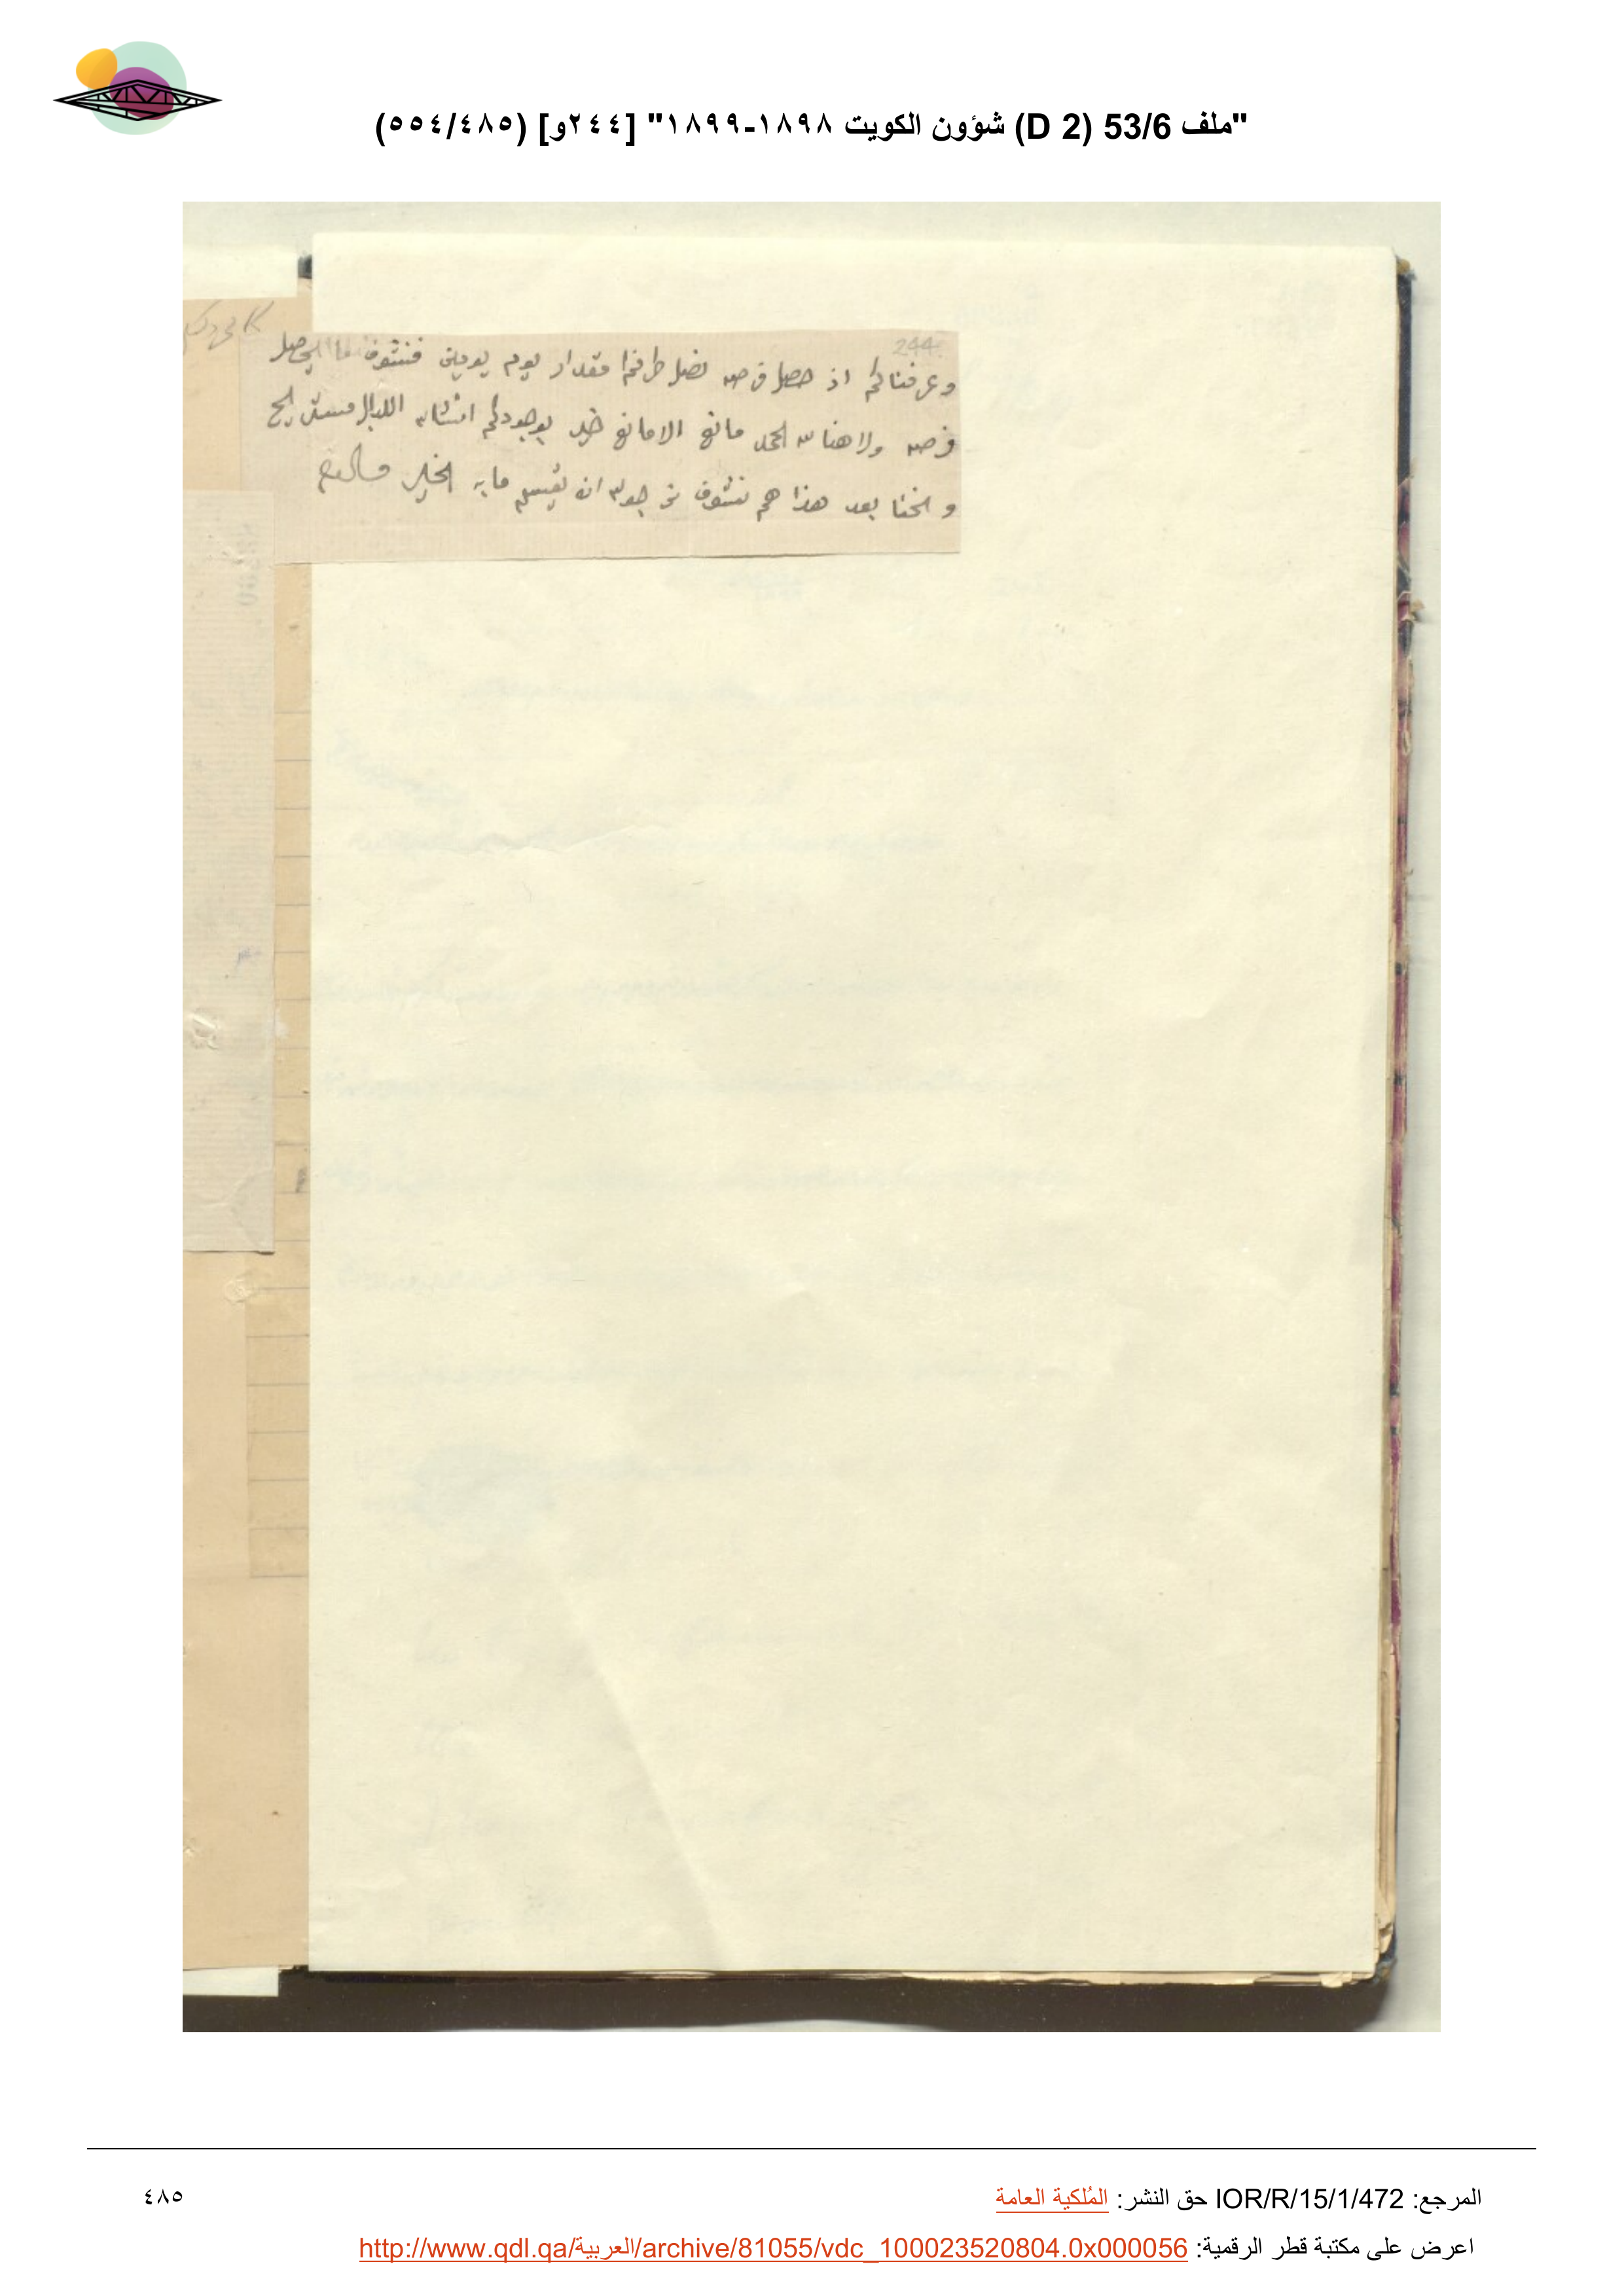 "ملف 53/6 (D 2) شؤون الكويت ١٨٩٨-١٨٩٩" [٢٤٤و] (٤٨٥/٥٥٤)
244
وعرفنالكم اذ حصل فرصه نصل طرفكم مقدار يوم يومين فنشوف ما يحصل
فرصه ولا هنا لله الحمد مانع الا مانع خير بوجودكم انشاله البال مستريح
و احنا بعد هذا هم نشوف ان ما به الخير والسلام
المرجع: IOR/R/15/1/472 حق النشر: المُلكية العامة
٤٨٥
اعرض على مكتبة قطر الرقمية: http://www.qdl.qa/العربية/archive/81055/vdc_100023520804.0x000056